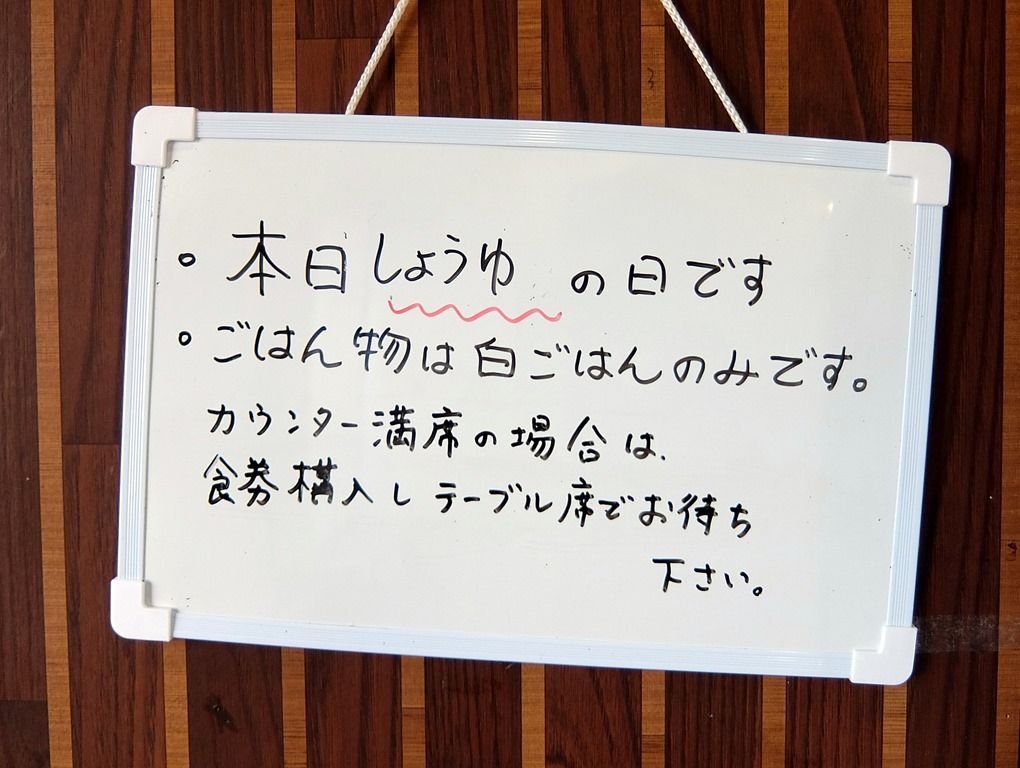 。本日しょうゆ の日です
。ごはん物は白ごはんのみです。
カウンター満席の場合は、
食券構入しテーブル席でお待ち
下さい。